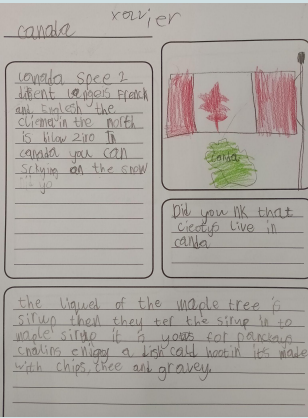 xavier
canada
canada spee 2
difent langers French
and English the
cliema in the north
is bilow ziro In
canada you can
sciying on the snow
canda
Did you nk that
cieotys live in
canda
the liquel of the maple tree is
sirup then they ter the sirup in to
maple sirup it is yows for pancays
cnalins enjoy a dish cald hootin it's made
with chips, chee and gravey.